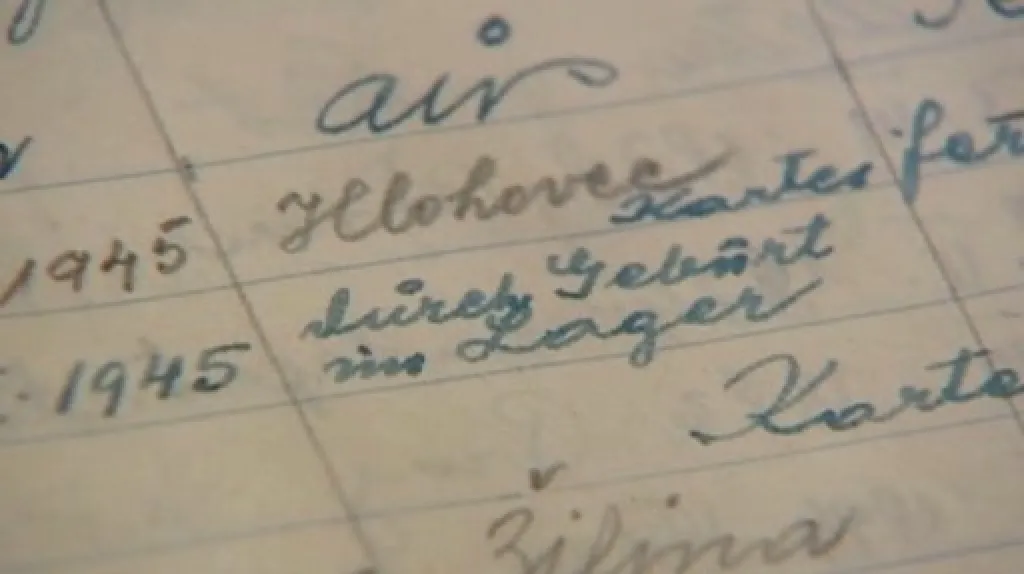 1945 Hlohovec Karte
durch Geburt
1945 im Lager
Karte
Žilina